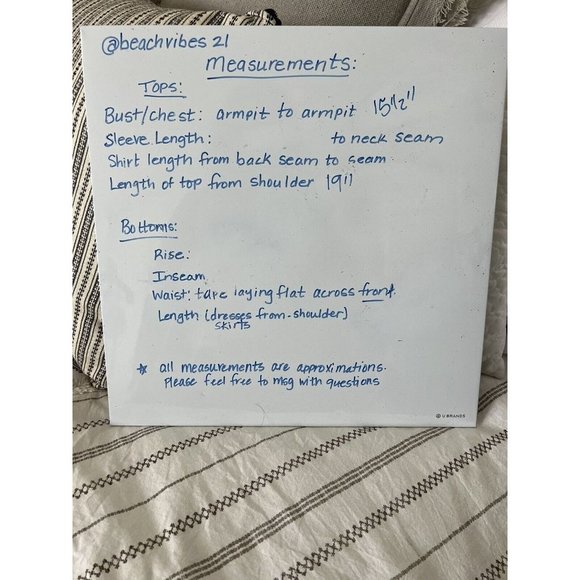 @beachvibes 21
Measurements:
Tops:
Bust/chest: armpit to armpit 15 1/2"
Sleeve Length: to neck seam
Shirt length from back seam to seam
Length of top from shoulder 19"
Bottoms:
Rise:
Inseam
Waist: take laying flat across front.
Length (dresses from-shoulder)
skirts
* all measurements are approximations.
Please feel free to msg with questions
U BRANDS